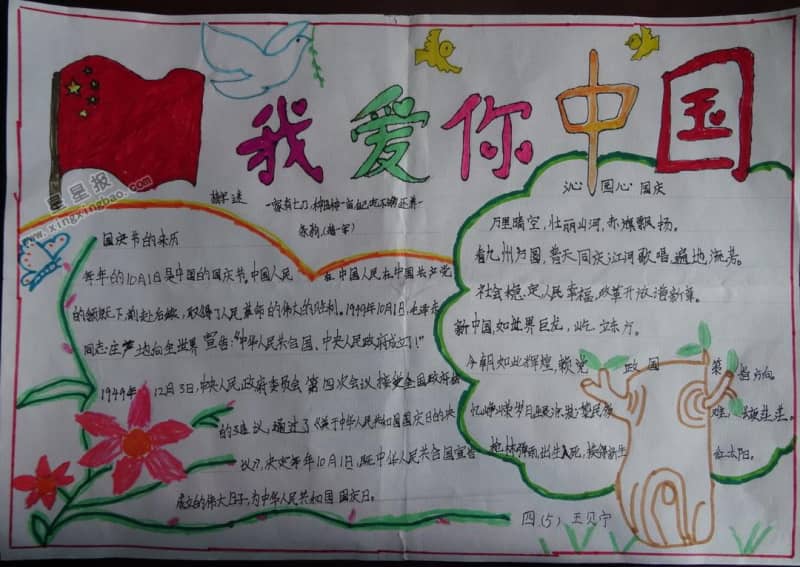 我爱你中国
星星报
www.xingxingbao.com
谜
国庆节的来历
每年的10月1日是中国的国庆节。中国人民 在中国人民在中国共产党
的领导下,前赴后继,取得了人民革命的伟大的胜利。1949年10月1日,毛泽东
同志庄严地向全世界宣告:"中华人民共合国、中央人民政府成立了!"
1949年 12月3日,中央人民政府委员会第四次会议接受全国政协
的建议,通过了《关于中华人民共和国国庆日的决
议》,决定每年10月1日,既中华人民共合国宣告
成立的伟大日子,为中华人民共和国国庆日。
沁园心 国庆
万里晴空,壮丽山河,赤旗飘扬。
看九州方圆,普天同庆,江河歌唱,遍地流芳。
社会稳定,人民幸福,改革开放谱新章。
新中国,如世界巨龙,屹立东方。
今朝如此辉煌,赖党 政国 策 当方向。
忆峥嵘岁月 民族 难,
枪林弹雨,出生入死,换得新生 红太阳。
四(5) 王贝宁